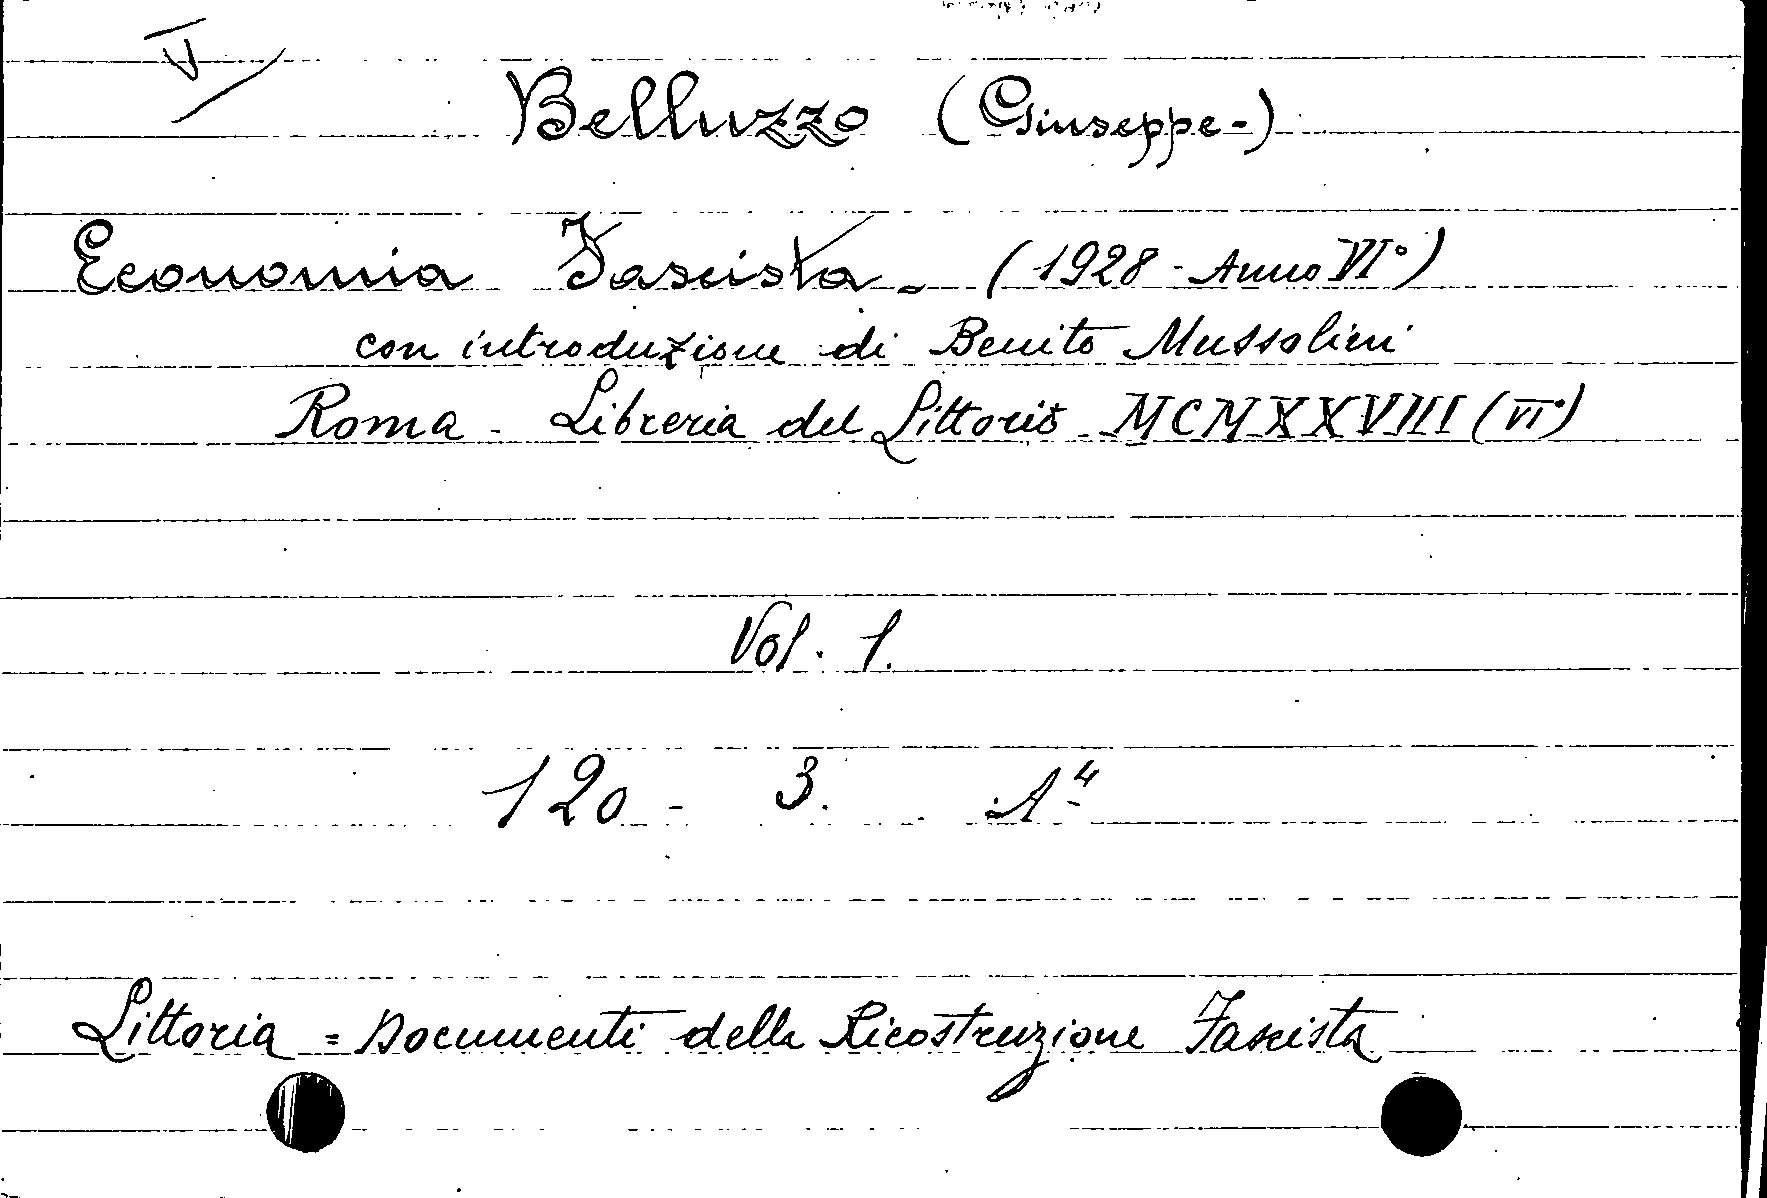 V
Belluzzo (Giuseppe-)
Economia Fascista - (1928 - Anno VI°)
con introduzione di Benito Mussolini
Roma - Libreria del Littorio MCMXXVIII (VI°)
Vol. 1.
120 - 3. A⁴
Littoria = Documenti della Ricostruzione Fascista